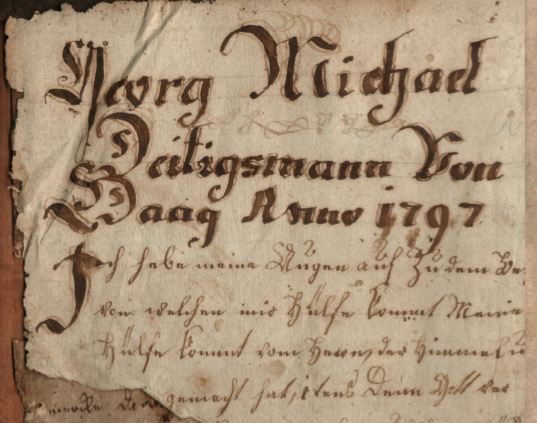 Georg Michael
Heiligsmann Von
Haag Anno 1797
Ich hebe meine Augen auf Zu dem
von welchen mir Hülfe kommt Meine
Hülfe kommt vom Herrn, der Himmel
gemacht hat, denn Gott